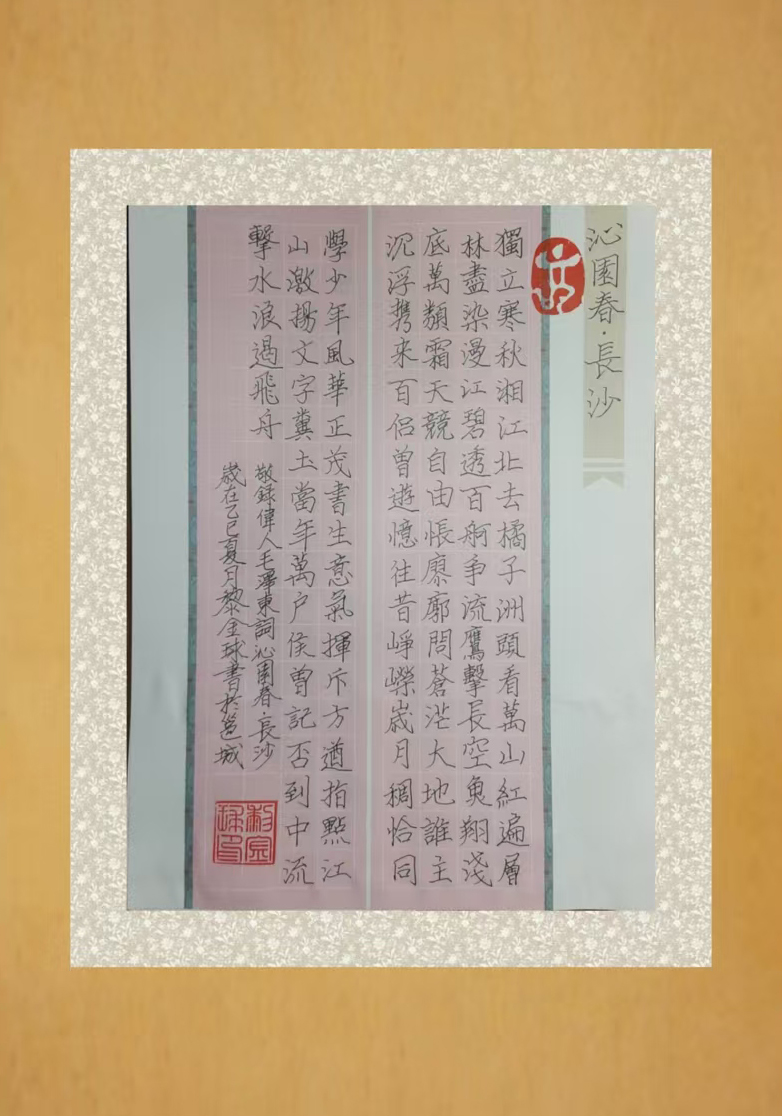 沁園春·長沙
獨立寒秋湘江北去橘子洲頭看萬山紅遍層
林盡染漫江碧透百舸争流鷹擊長空魚翔淺
底萬類霜天競自由悵廖廓問蒼茫大地誰主
沉浮携来百侣曾遊憶往昔崢嶸歲月稠恰同
學少年風華正茂書生意氣揮斥方遒指點江
山激揚文字糞土當年萬户侯曾記否到中流
擊水浪遏飛舟
敬録偉人毛澤東詞沁園春·長沙
歲在乙巳夏月黎金球書於邕城